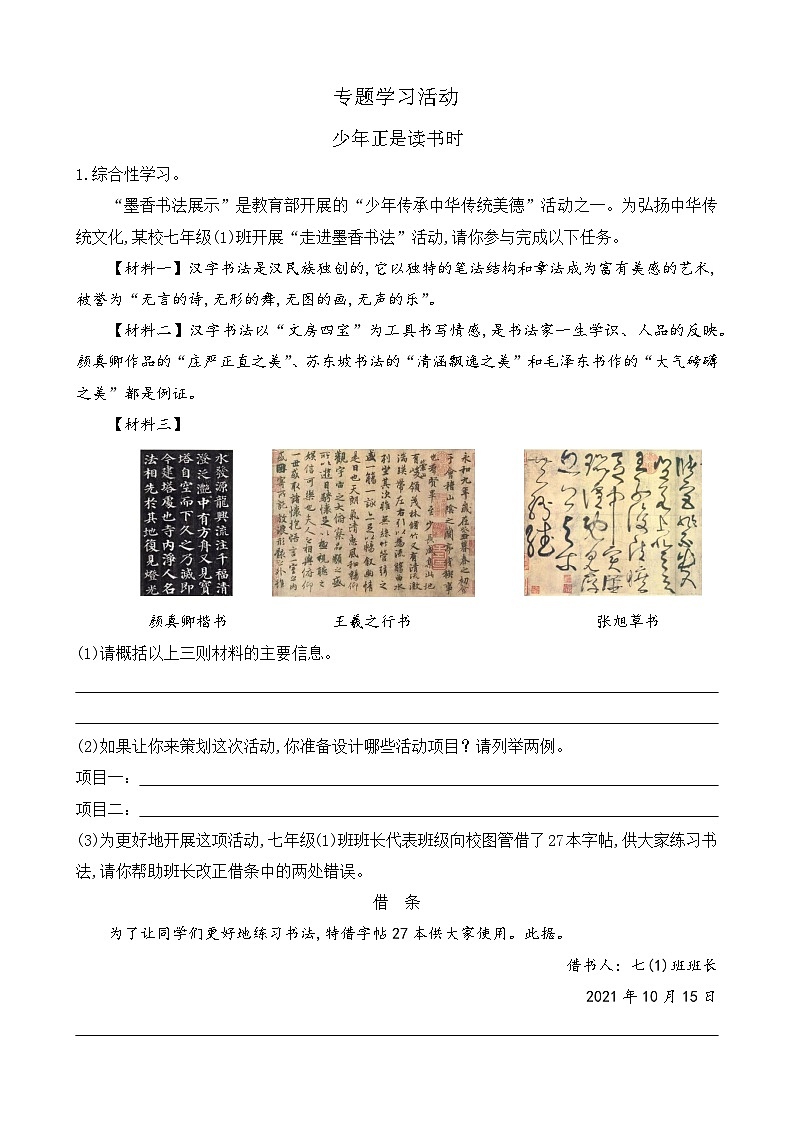 专题学习活动
少年正是读书时
1.综合性学习。
“墨香书法展示”是教育部开展的“少年传承中华传统美德”活动之一。为弘扬中华传
统文化,某校七年级(1)班开展“走进墨香书法”活动,请你参与完成以下任务。
【材料一】汉字书法是汉民族独创的,它以独特的笔法结构和章法成为富有美感的艺术,
被誉为“无言的诗,无形的舞,无图的画,无声的乐”。
【材料二】汉字书法以“文房四宝”为工具书写情感,是书法家一生学识、人品的反映。
颜真卿作品的“庄严正直之美”、苏东坡书法的“清涵飘逸之美”和毛泽东书作的“大气磅礴
之美”都是例证。
【材料三】
水發源龍興流注千福清
澄泛灔中有方舟又見寶
塔自空而下久之乃滅即
今建塔處也寺内淨人名
法相先於其地復見燈光
永和九年歲在癸丑暮春之初會
于會稽山陰之蘭亭脩稧事
颜真卿楷书
王羲之行书
张旭草书
(1)请概括以上三则材料的主要信息。
(2)如果让你来策划这次活动,你准备设计哪些活动项目?请列举两例。
项目一:
项目二:
(3)为更好地开展这项活动,七年级(1)班班长代表班级向校图管借了27本字帖,供大家练习书
法,请你帮助班长改正借条中的两处错误。
借 条
为了让同学们更好地练习书法,特借字帖27本供大家使用。此据。
借书人: 七(1)班班长
2021年10月15日